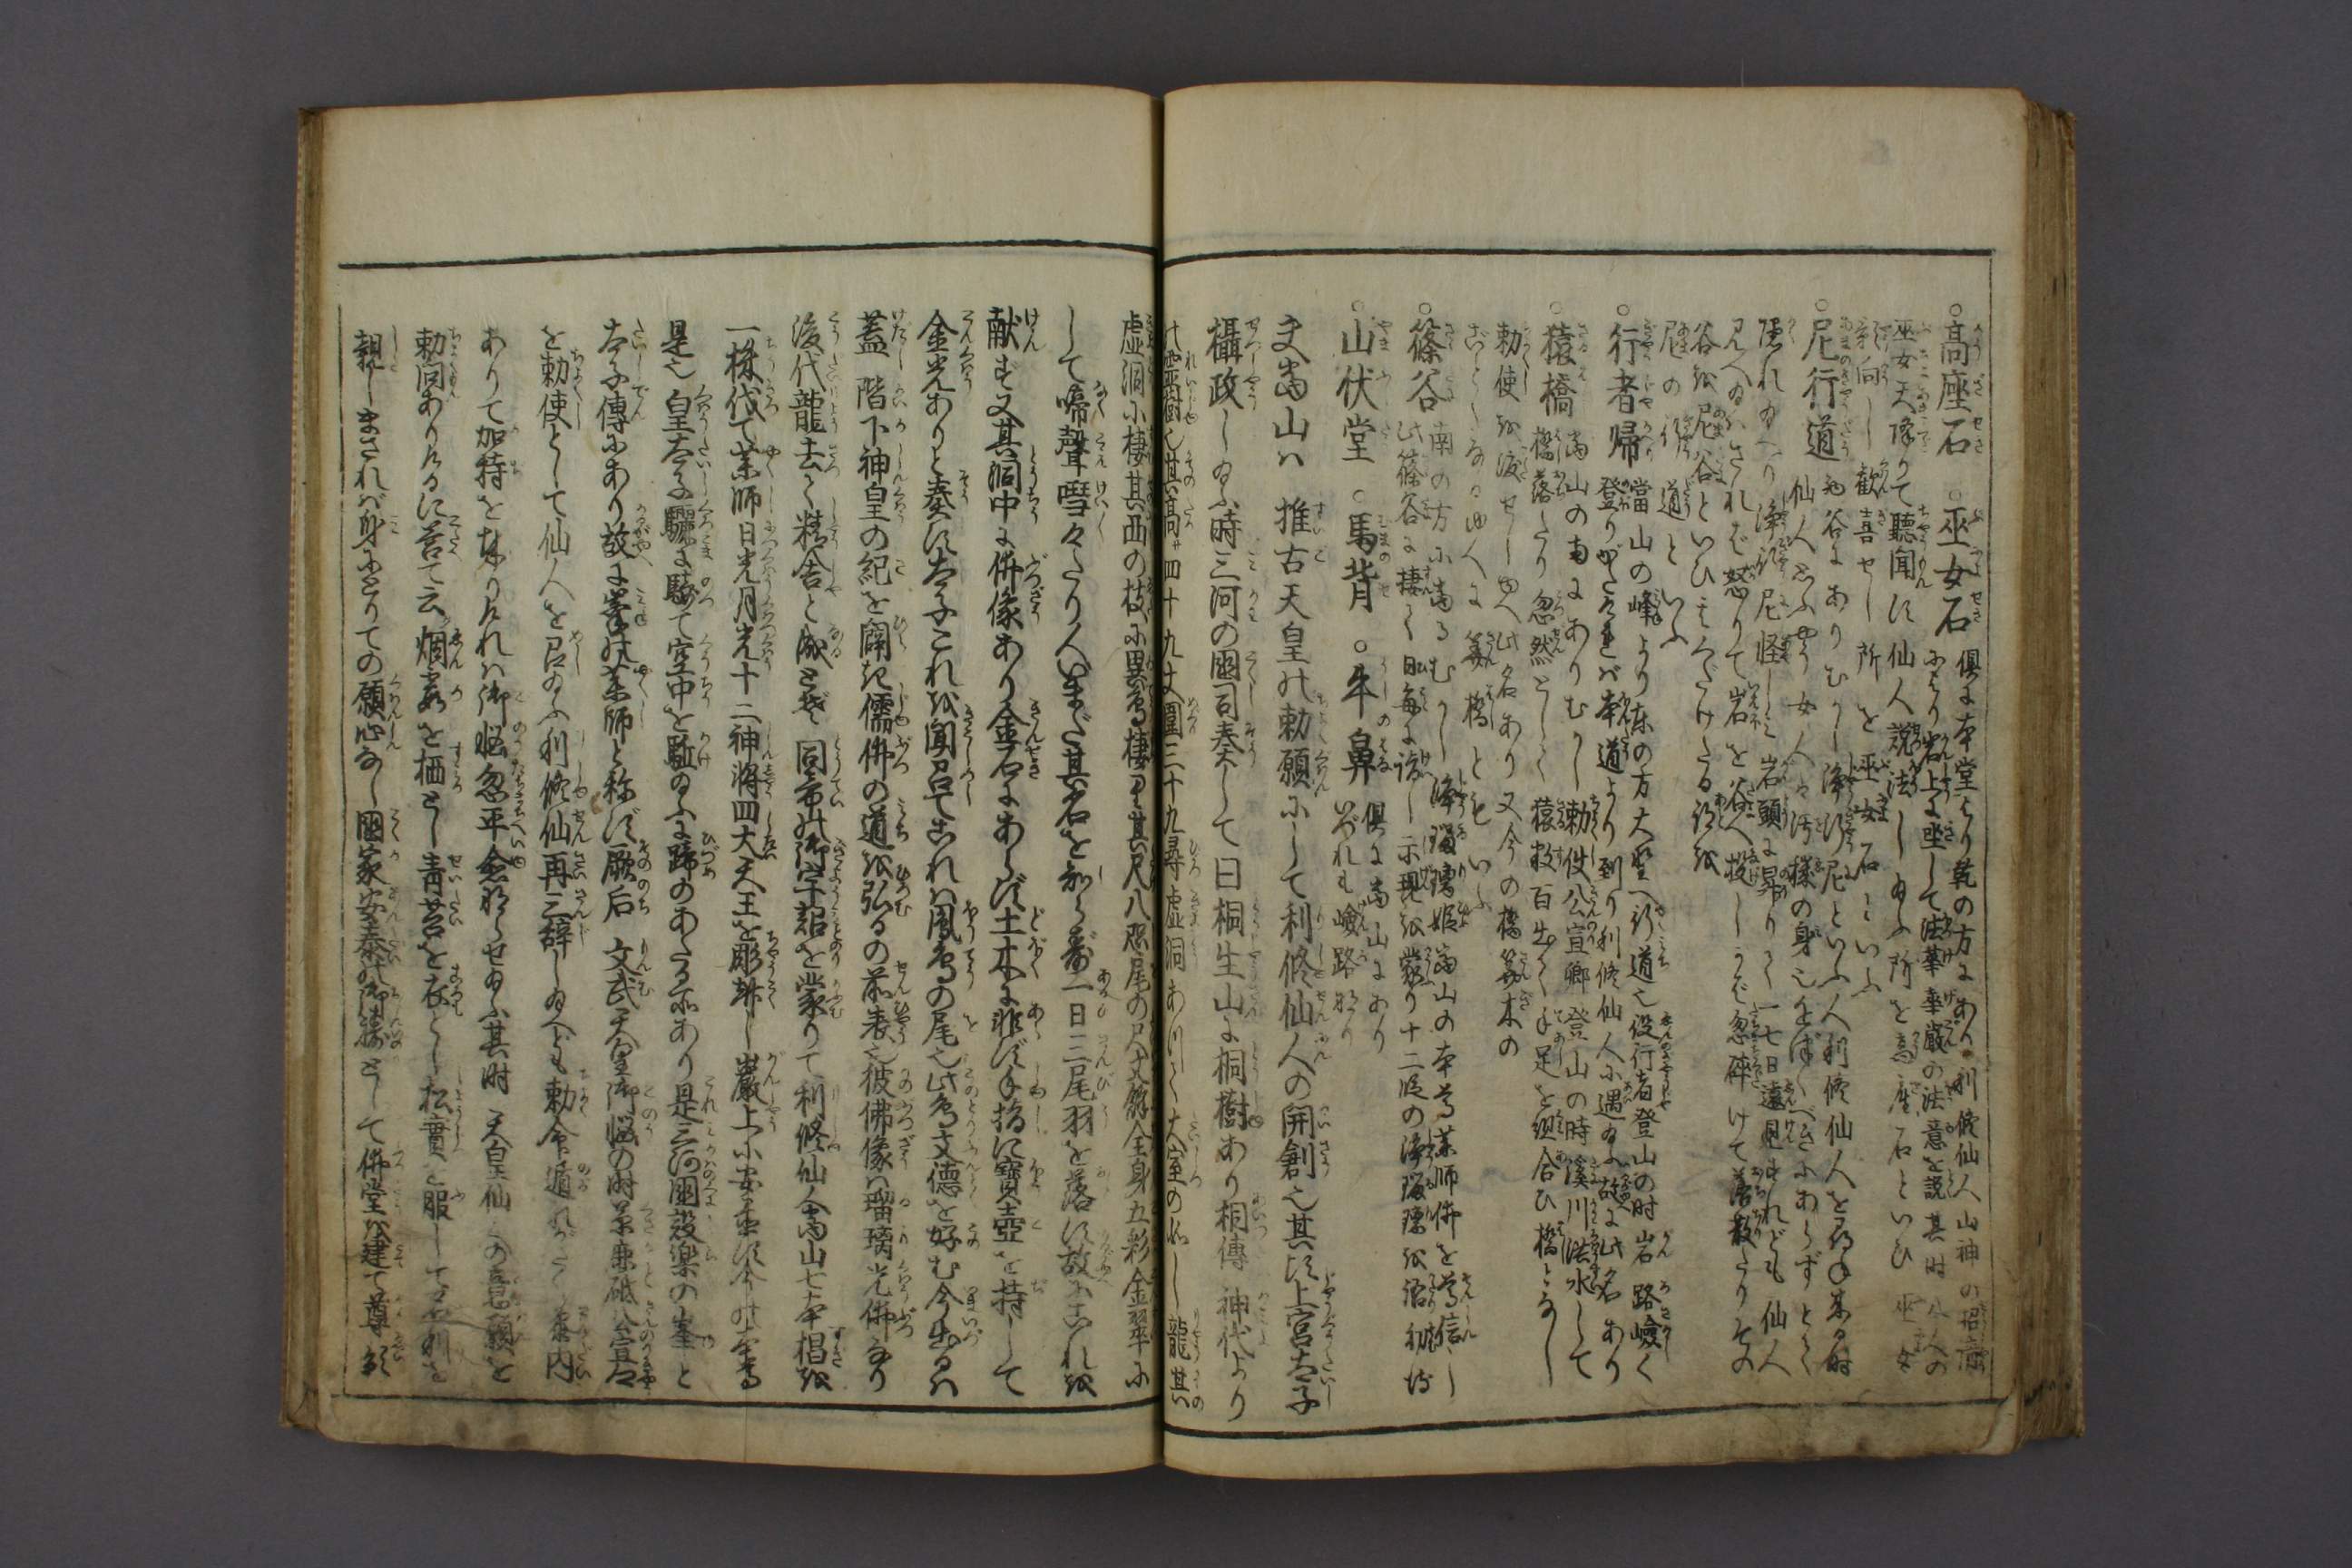 ○高座石 ○巫女石 倶に本堂より乾の方にあり利修仙人山神の招請
により岩上に坐して法華華厳の法意を説其时
巫女天降りて聴聞に仙人説法し給ふ所を高座石といひ巫女
影向し歓喜せし所を巫女石といふ
○尼行道 谷にありむかし浄瑠尼といふ人利修仙人を
仙人思ふやう女人は汚穢の身也近づくべきにあらずとて
隠れ給へり浄瑠尼怪しみ岩頭に昇りて一七日遠見すれども仙人
見へ給はざれば怒りて岩を谷へ投しかば忽砕けて落散たりその
谷を尼谷といひ
尼の行道といふ
○行者帰 當山の峰より東の方大野へ行道也役行者登山の时岩路嶮く
登りがたければ本道より到り利修仙人に遇給ふ故に此名あり
○猿橋 當山の南にありむかし勅使公宣卿登山の時溪川洪水して
橋落たり忽然として猿数百出て手足を組合ひ橋となし
勅使を渡せしゆへ此名あり又今の橋算木の
ごとくなるゆへに算橋ともいふ
○篠谷 南の方に當るむかし浄瑠璃姫當山の本尊薬師佛を尊信し
此篠谷に棲て日毎に詣し示現を蒙り十二段の浄瑠璃を
○山伏堂 ○馬背 ○牛鼻 倶に當山にあり
いづれも嶮路也
文當山ハ 推古天皇の勅願にして利修仙人の開創也其頃上宮太子
攝政し給ふ時三河の國司奏して曰桐生山に桐樹あり相傳神代より
の霊樹也其高サ四十九丈圍三十九尋虚洞ありて大室の如し龍其
虚洞に棲其西の枝に異鳥棲り其尺八咫尾の尺丈餘全身五彩金翠に
して啼聲嘒々たり人いまだ其名を知らず一日三尾羽を落に故にこれを
献ず又其洞中に佛像あり金石にあらず土木に非ず手指に寶壺を持して
金光ありと奏に太子これを聞召てこれハ鳳鳥の尾也此鳥文德を好む今出るハ
蓋 階下神皇の紀を闢き儒佛の道を弘るの前表也彼佛像ハ瑠璃光佛なり
後代龍去て精舎と成と 同帝の御宇詔を蒙りて利修仙人當山七本椙を
一株伐て薬師日光月光十二神將四大天王を彫刻し巖上に安置に今の本尊
是也 皇太子驪に駿て空中を馳給ふに蹄のあたる所あり是三河國設楽の峯と
太子傳にあり故に峯の薬師と称に厥后 文武天皇御悩の时草鹿砥公宣卿
を勅使として仙人を召給ふ利修仙再三辞し給へども勅令遁れがたく参内
ありて加持を奉りければ御悩忽平愈ならせ給ふ其时 天皇仙人の意願を
勅問ありけるに答て云烟霞を栖とし青苔を衣とし松實を服して
親しまされば身にとりての願心なし國家安泰の御祷として佛堂を建て尊